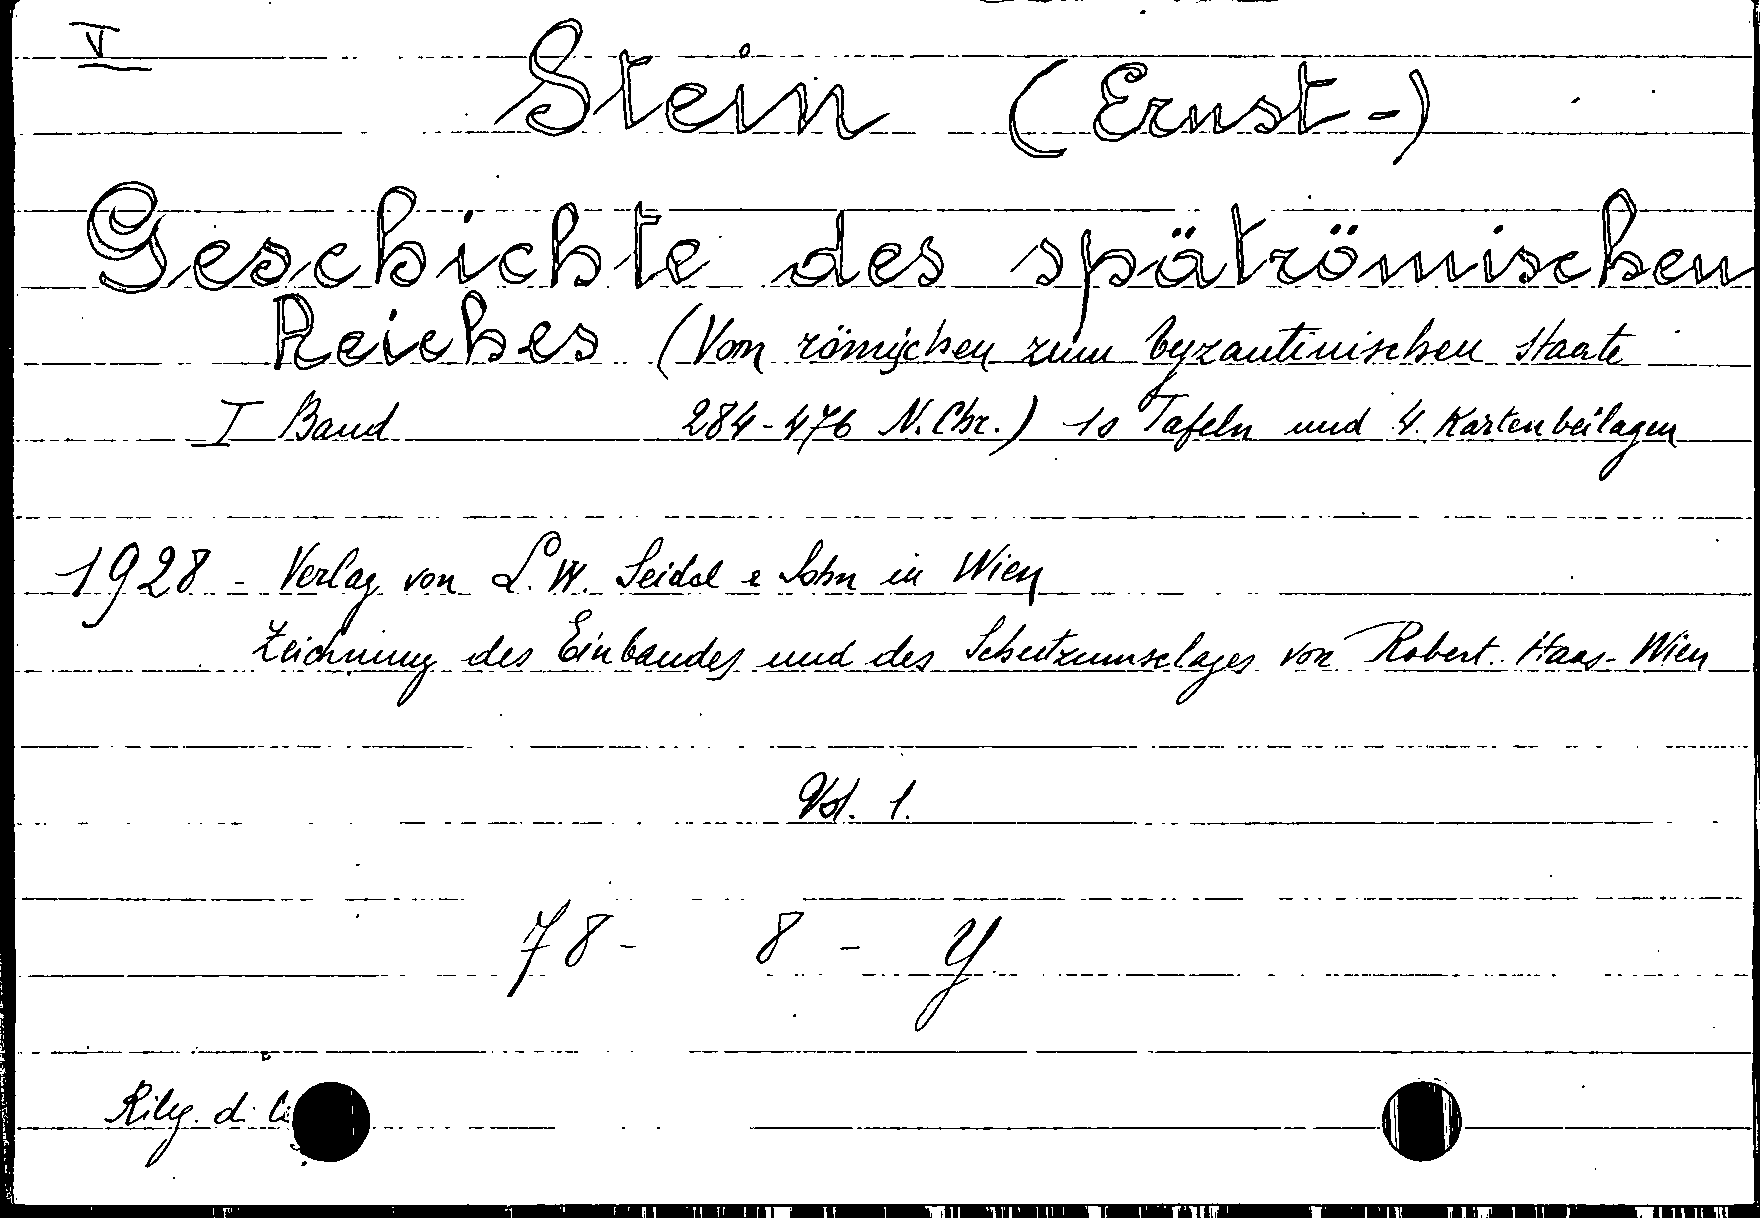 V
Stein (Ernst-)
Geschichte des spätrömischen
Reiches (Vom römischen zum byzantinischen Staate
I Band 284-476 N. Chr.) 10 Tafeln und 4. Kartenbeilagen
1928 - Verlag von L. W. Seidel e Sohn in Wien
Zeichnung des Einbandes und des Schutzumschlages von Robert Haas - Wien
Vol. 1.
78- 8 - Y
Rileg. d.